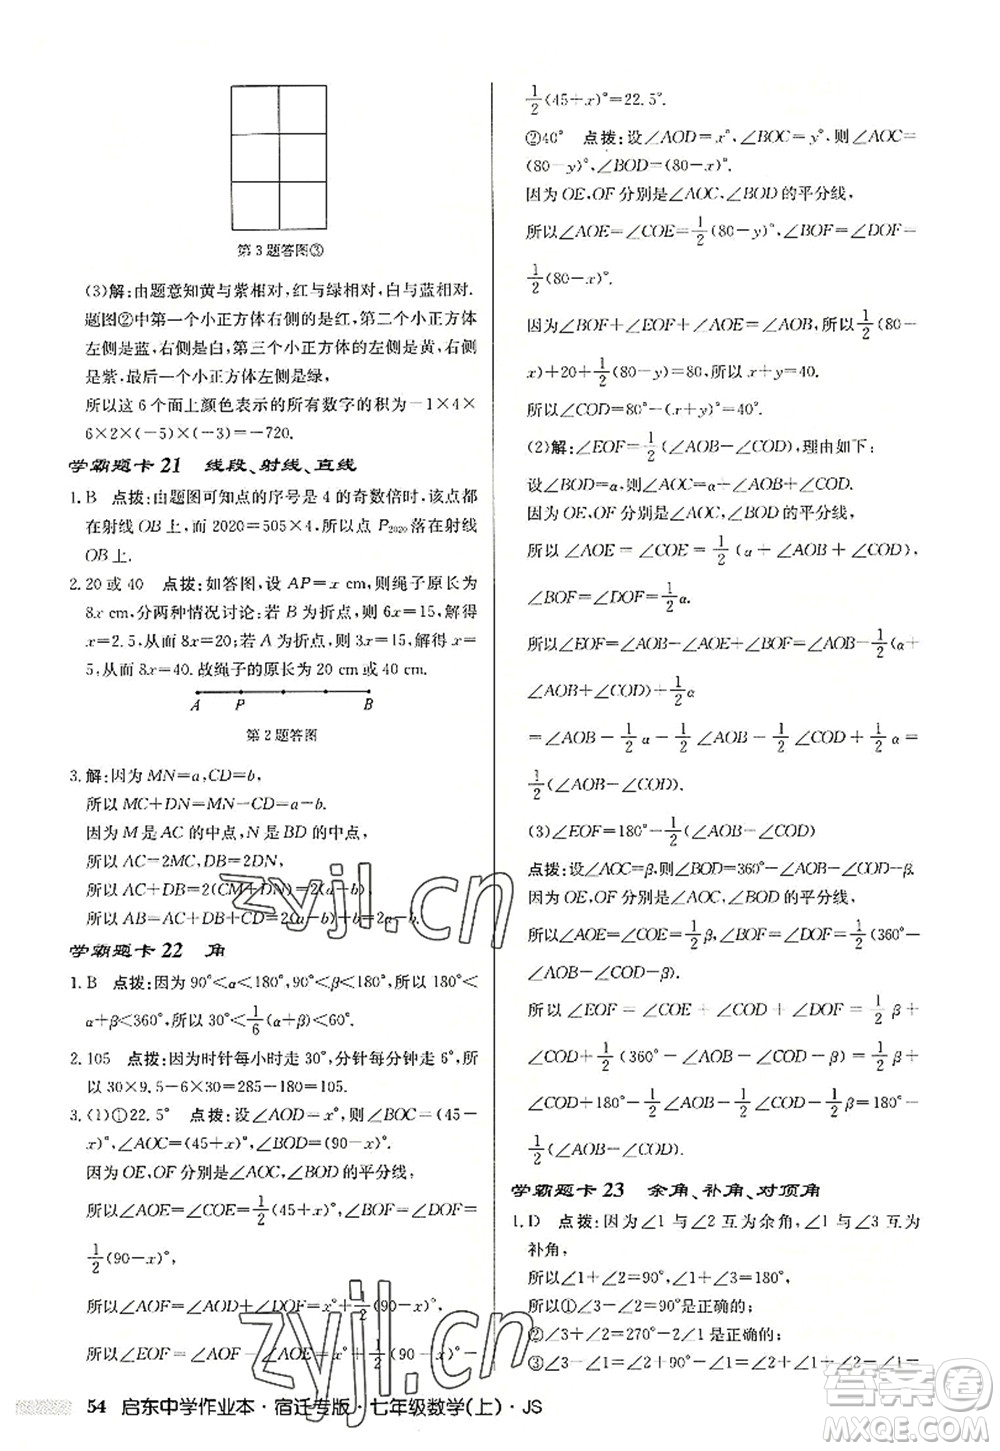 第3题答图③
(3)解:由题意知黄与紫相对,红与绿相对,白与蓝相对.
题图②中第一个小正方体右侧的是红,第二个小正方体
左侧是蓝,右侧是白,第三个小正方体的左侧是黄,右侧
是紫,最后一个小正方体左侧是绿,
所以这6个面上颜色表示的所有数字的积为-1×4×
6×2×(-5)×(-3)=-720.
学霸题卡21 线段、射线、直线
1.B 点拨:由题图可知点的序号是4的奇数倍时,该点都
在射线OB上,而2020=505×4,所以点P₂₀₂₀落在射线
OB上.
2.20或40 点拨:如答图,设AP=x cm,则绳子原长为
8x cm,分两种情况讨论:若B为折点,则6x=15,解得
x=2.5,从而8x=20;若A为折点,则3x=15,解得
x=5,从而8x=40.故绳子的原长为20 cm或40 cm.
A P B
第2题答图
3.解:因为MN=a,CD=b,
所以MC+DN=MN-CD=a-b.
因为M是AC的中点,N是BD的中点,
所以AC=2MC,DB=2DN,
所以AC+DB=2(CM+DN)=2(a-b),
所以AB=AC+DB+CD=2(a-b)+b=2a-b.
学霸题卡22 角
1.B 点拨:因为90°<α<180°,90°<β<180°,所以180°<
α+β<360°,所以30°<1/6(α+β)<60°.
2.105 点拨:因为时针每小时走30°,分针每分钟走6°,所
以30×9.5-6×30=285-180=105.
3.(1)①22.5° 点拨:设∠AOD=x°,则∠BOC=(45-
x)°,∠AOC=(45+x)°,∠BOD=(90-x)°.
因为OE,OF分别是∠AOC,∠BOD的平分线,
所以∠AOE=∠COE=1/2(45+x)°,∠BOF=∠DOF=
1/2(90-x)°,
所以∠AOF=∠AOD+∠DOF=x°+1/2(90-x)°,
所以∠EOF=∠AOF-∠AOE=x°+1/2(90-x)°-
1/2(45+x)°=22.5°.
②40° 点拨:设∠AOD=x°,∠BOC=y°,则∠AOC=
(80-y)°,∠BOD=(80-x)°.
因为OE,OF分别是∠AOC,∠BOD的平分线,
所以∠AOE=∠COE=1/2(80-y)°,∠BOF=∠DOF=
1/2(80-x)°.
因为∠BOF+∠EOF+∠AOE=∠AOB,所以1/2(80-
x)+20+1/2(80-y)=80,所以x+y=40.
所以∠COD=80°-(x+y)°=40°.
(2)解:∠EOF=1/2(∠AOB-∠COD),理由如下:
设∠BOD=α,则∠AOC=α+∠AOB-∠COD.
因为OE,OF分别是∠AOC,∠BOD的平分线,
所以∠AOE=∠COE=1/2(α+∠AOB-∠COD),
∠BOF=∠DOF=1/2α.
所以∠EOF=∠AOB-∠AOE+∠BOF=∠AOB-1/2(α+
∠AOB-∠COD)+1/2α
=∠AOB-1/2α-1/2∠AOB+1/2∠COD+1/2α=
1/2(∠AOB+∠COD).
(3)∠EOF=180°-1/2(∠AOB-∠COD)
点拨:设∠AOC=β,则∠BOD=360°-∠AOB-∠COD-β.
因为OE,OF分别是∠AOC,∠BOD的平分线,
所以∠AOE=∠COE=1/2β,∠BOF=∠DOF=1/2(360°-
∠AOB-∠COD-β)
所以∠EOF=∠COE+∠COD+∠DOF=1/2β+
∠COD+1/2(360°-∠AOB-∠COD-β)=1/2β+
∠COD+180°-1/2∠AOB-1/2∠COD-1/2β=180°-
1/2(∠AOB-∠COD).
学霸题卡23 余角、补角、对顶角
1.D 点拨:因为∠1与∠2互为余角,∠1与∠3互为
补角,
所以∠1+∠2=90°,∠1+∠3=180°,
所以①∠3-∠2=90°是正确的;
②∠3+∠2=270°-2∠1是正确的;
③∠3-∠1=
54 启东中学作业本·宿迁专版·七年级数学(上)·JS
zyjl.cn
zyjl.cn
答案圈
MXQE.COM